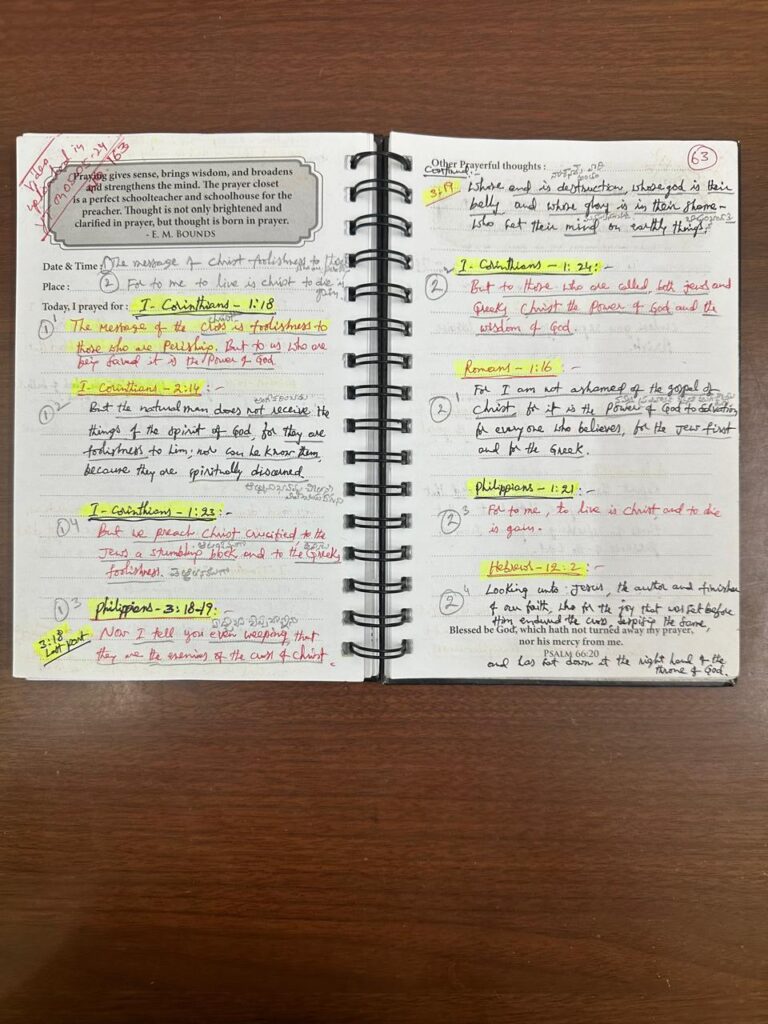 Video
uploaded in
63
Praying gives sense, brings wisdom, and broadens
and strengthens the mind. The prayer closet
is a perfect schoolteacher and schoolhouse for the
preacher. Thought is not only brightened and
clarified in prayer, but thought is born in prayer.
- E. M. BOUNDS
Date & Time : ① The message of Christ foolishness to those
who are
Place : ② For to me to live is christ to die is
Today, I prayed for : I - Corinthians - 1:18
① 1 The message of the cross is foolishness to
christ
those who are Perishing. But to us who are
being saved it is the Power of God.
I - Corinthians - 2:14 :-
① 2 But the natural man does not receive the
things of the spirit of God, for they are
foolishness to him; nor can he know them,
because they are spiritually discerned.
I - Corinthians - 1:23 :-
① 4 But we preach christ crucified to the
Jews a stumbling block and to the Greeks
foolishness.
① 3 Philippians - 3:18-19 :-
3:18
Last part
Now I tell you even weeping, that
they are the enemies of the cross of Christ.
63
Other Prayerful thoughts :
Continued :-
3:19 Whose end is destruction, whose god is their
belly and whose glory is is their shame-
who set their mind on earthly things.
I - Corinthians - 1:24 :-
② 2 But to those who are called, both jews and
Greeks Christ the Power of God and the
wisdom of God.
Romans - 1:16
② 1 For I am not ashamed of the gospel of
Christ, for it is the Power of God to Salvation
for everyone who believes, for the Jew first
and for the Greek.
Philippians - 1:21 :-
② 3 For to me, to live is Christ and to die
is gain.
Hebrews - 12:2 :-
② 4 Looking unto Jesus, the author and finisher
of our faith, who for the joy that was set before
Him endured the cross, despising the shame,
Blessed be God, which hath not turned away my prayer,
nor his mercy from me.
PSALM 66:20
and has sat down at the right hand of the
throne of God.